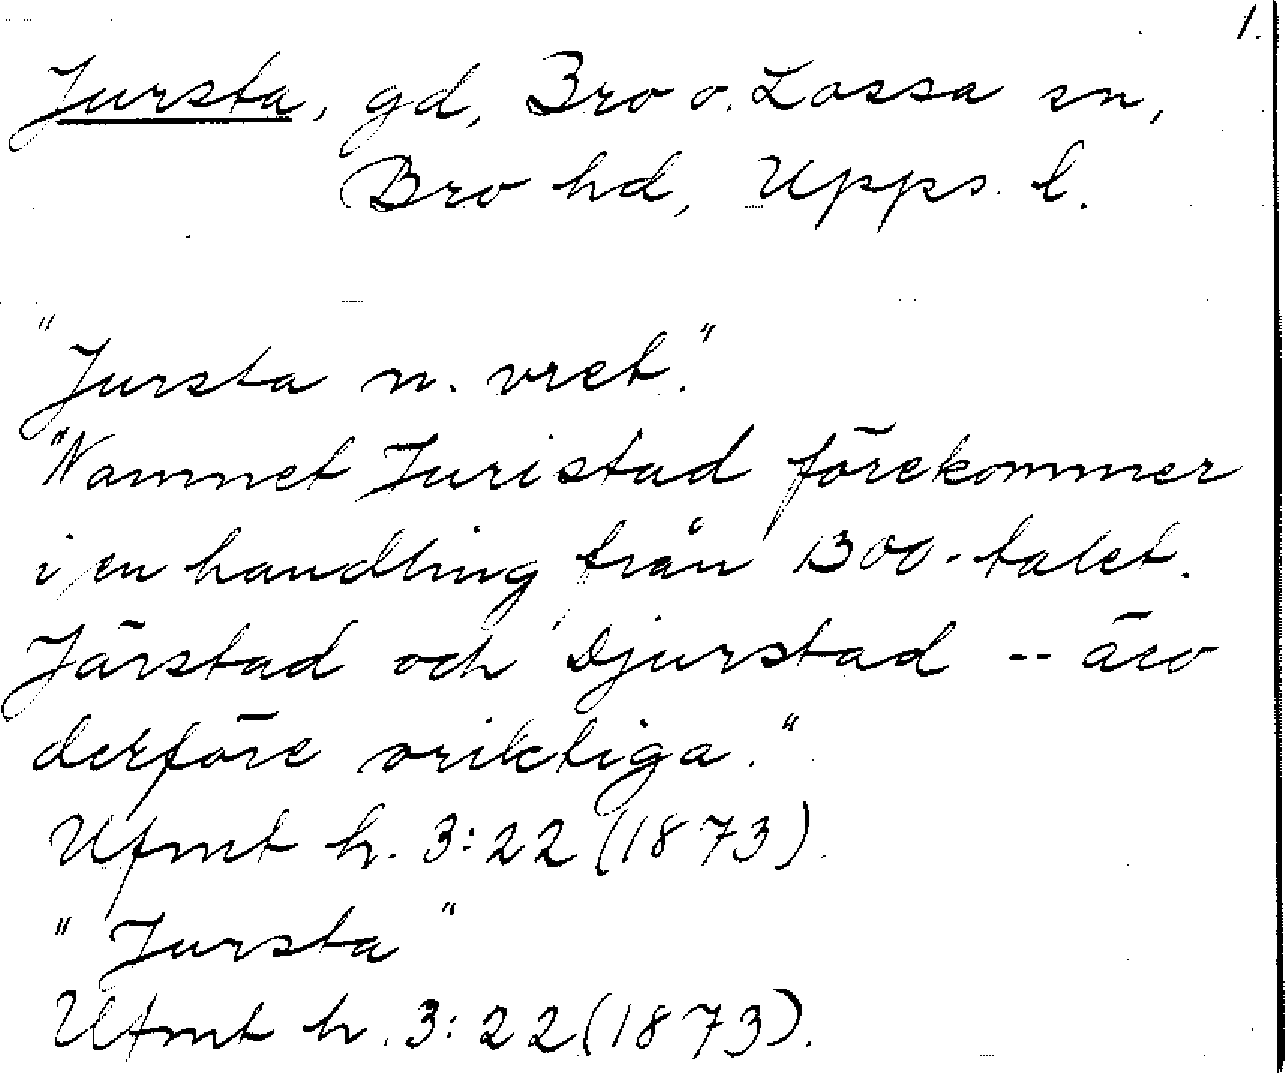 1.
Jursta, gd, Bro o. Lossa sn,
Bro hd, Upps. l.
"Jursta n. vret."
"Namnet Juristad förekommer
i en handling från 1300-talet.
Järstad och Djurstad -- äro
derföre oriktiga."
Ufmt h. 3:22 (1873).
"Jursta"
Ufmt h. 3:22 (1873).